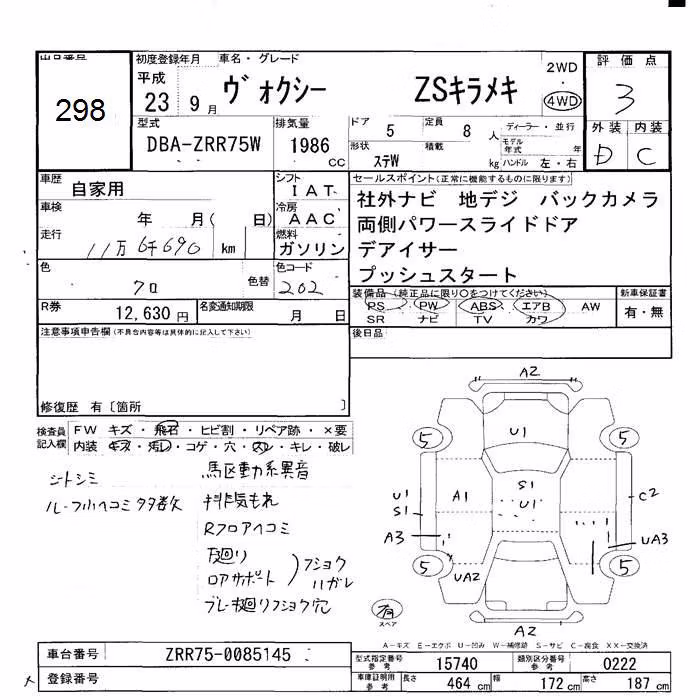 出品番号
298
初度登録年月
平成
23 9 月
車名・グレード
ヴォクシー ZSキラメキ
2WD
4WD
評価点
3
外装 内装
D C
型式
DBA-ZRR75W
排気量
1986
CC
ドア 5 定員 8 人
形状 ステW 積載 kg
ディーラー・並行
モデル年式 年
ハンドル 左・右
車歴
自家用
シフト
IAT
車検
年 月( 日)
冷房
AAC
走行
11万 6千 690 km
燃料
ガソリン
色
クロ
色替
色コード
202
R券
12,630 円
名変通知期限
月 日
セールスポイント(正常に機能するものに限ります)
社外ナビ 地デジ バックカメラ
両側パワースライドドア
デアイサー
プッシュスタート
装備品(純正品に限り○をつけてください)
PS PW ABS エアB AW
SR ナビ TV カワ
新車保証書
有・無
後日品
注意事項申告欄(不具合内容等は具体的に記入して下さい)
修復歴 有〔箇所 〕
検査員
記入欄
FW キズ・飛石・ヒビ割・リペア跡・×要
内装 キズ・汚レ・コゲ・穴・スレ・キレ・破レ
シートシミ
ルーフ小ヘコミ多数
駆動系異音
排気もれ
Rフロアヘコミ
下廻り
ロアサポート
フショク
ハガレ
フショク穴
A2
5
5
U1
U1
S1
A1
S1
U1
C2
A3
UA3
5
5
UA2
A2
有
スペア
A-キズ E-エクボ U-凹み W-補修跡 S-サビ C-腐食 XX-交換済
車台番号
ZRR75-0085145
登録番号
型式指定番号
参考
15740
類別区分番号
参考
0222
車庫証明用
参考
長さ 464 cm 幅 172 cm 高さ 187 cm